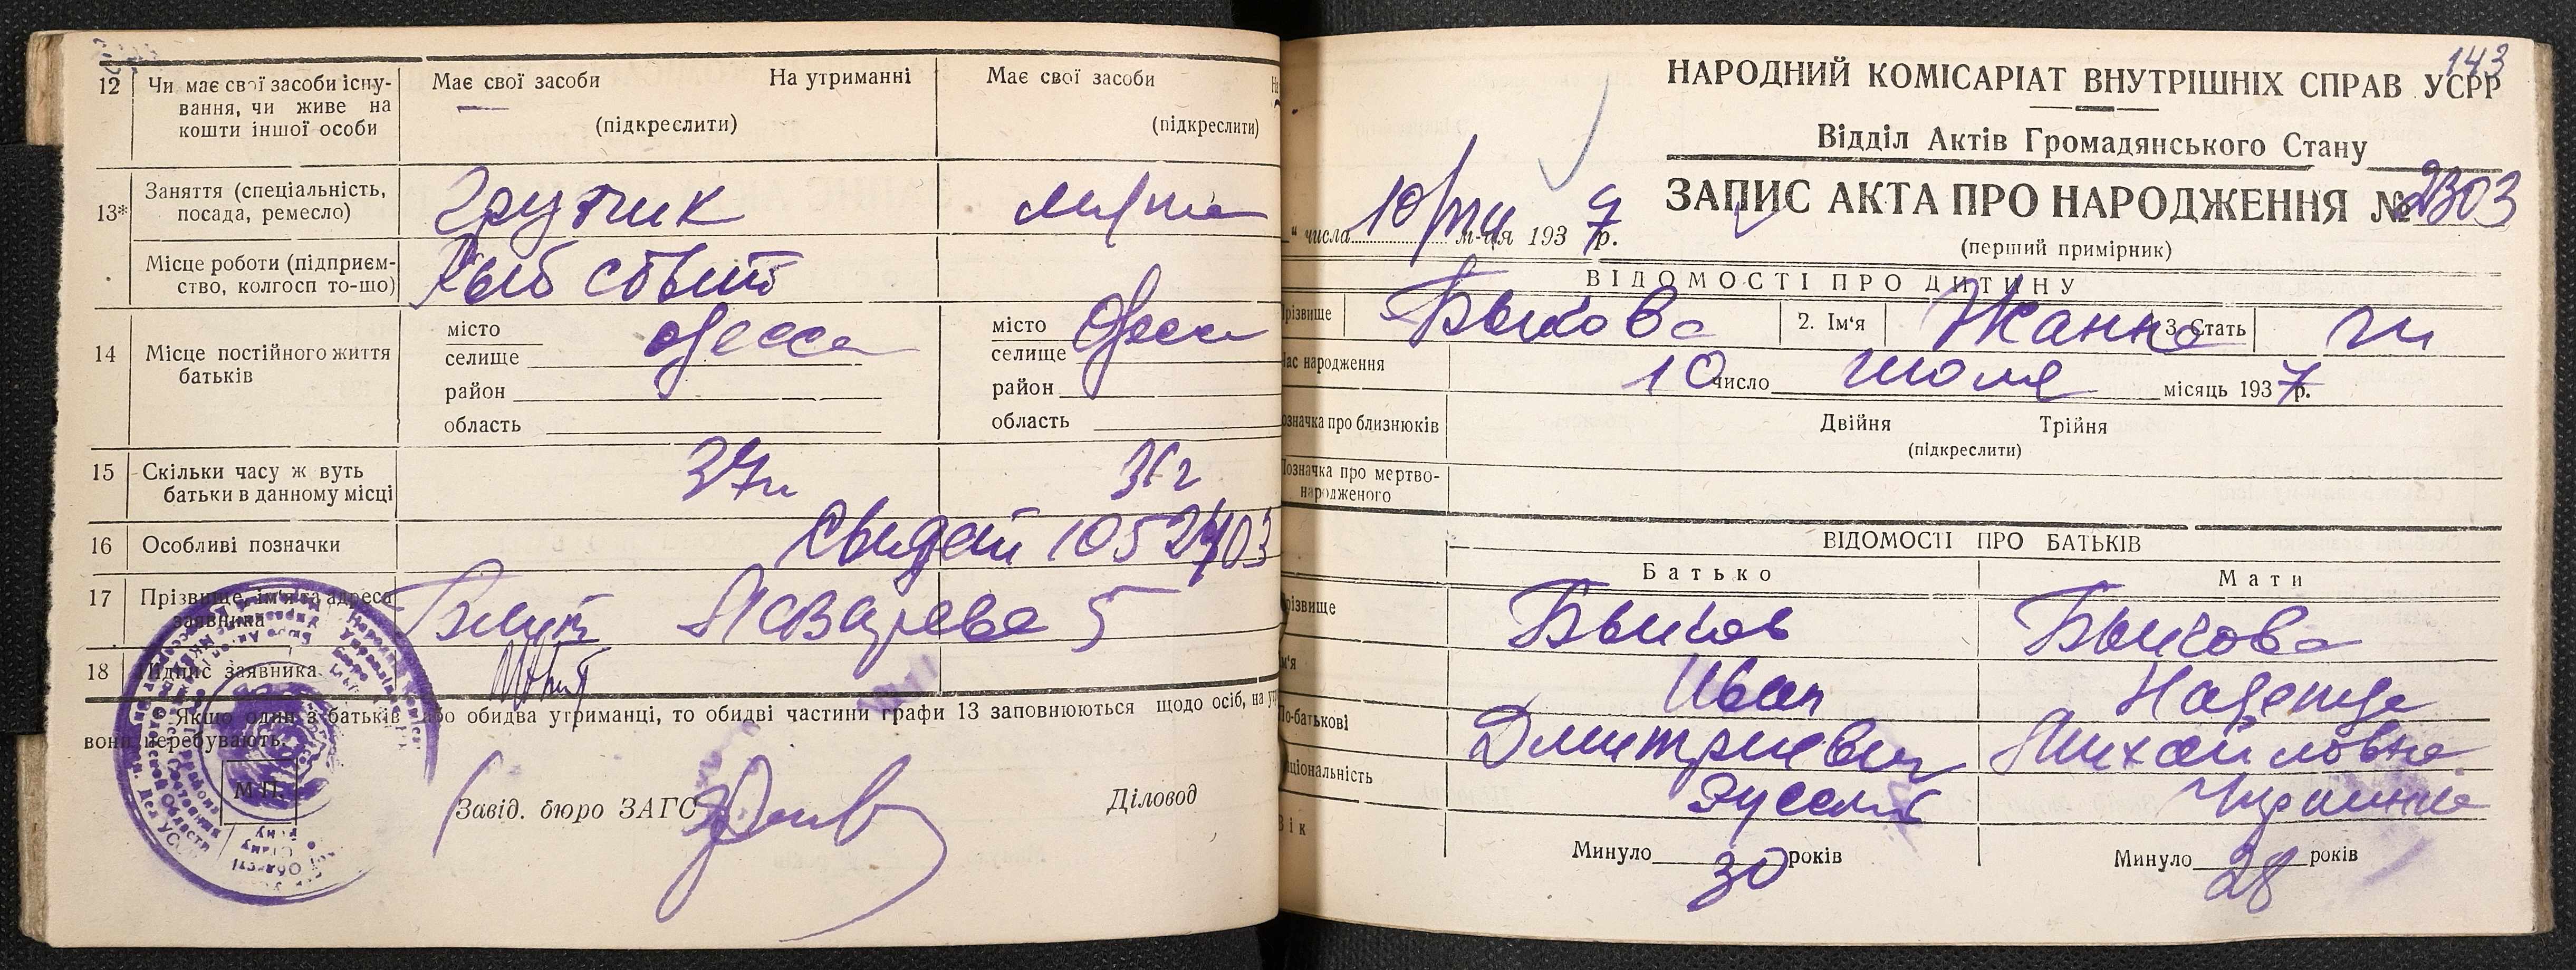 12 Чи має свої засоби існу-
вання, чи живе на
кошти іншої особи
Має свої засоби На утриманні
(підкреслити)
Має свої засоби
(підкреслити)
13* Заняття (спеціальність,
посада, ремесло)
Грузчик
Місце роботи (підприєм-
ство, колгосп то-що)
Рыб сбыт
14 Місце постійного життя
батьків
місто Одесса
селище
район
область
місто Одесса
селище
район
область
15 Скільки часу ж вуть
батьки в данному місці
16 Особливі позначки
17 Прізвище, ім'я та адреса
заявника
Лазарева 5
18 Підпис заявника
Якщо один з батьків або обидва утриманці, то обидві частини графи 13 заповнюються щодо осіб, на
вони перебувають.
М.П.
Завід. бюро ЗАГС
Діловод
143
НАРОДНИЙ КОМІСАРІАТ ВНУТРІШНІХ СПРАВ УСРР
Відділ Актів Громадянського Стану
ЗАПИС АКТА ПРО НАРОДЖЕННЯ № 2303
(перший примірник)
" числа м-ця 1937 р.
ВІДОМОСТІ ПРО ДИТИНУ
різвище Быкова 2. Ім'я Жанна 3. Стать
ас народження 10 число июля місяць 1937 р.
означка про близнюків Двійня Трійня
(підкреслити)
Позначка про мертво-
народженого
ВІДОМОСТІ ПРО БАТЬКІВ
Батько Мати
різвище Быков Быкова
м'я Иван Надежда
По-батькові Дмитриевич Михайловна
ціональність Русский Украинка
Вік
Минуло 30 років Минуло 28 років